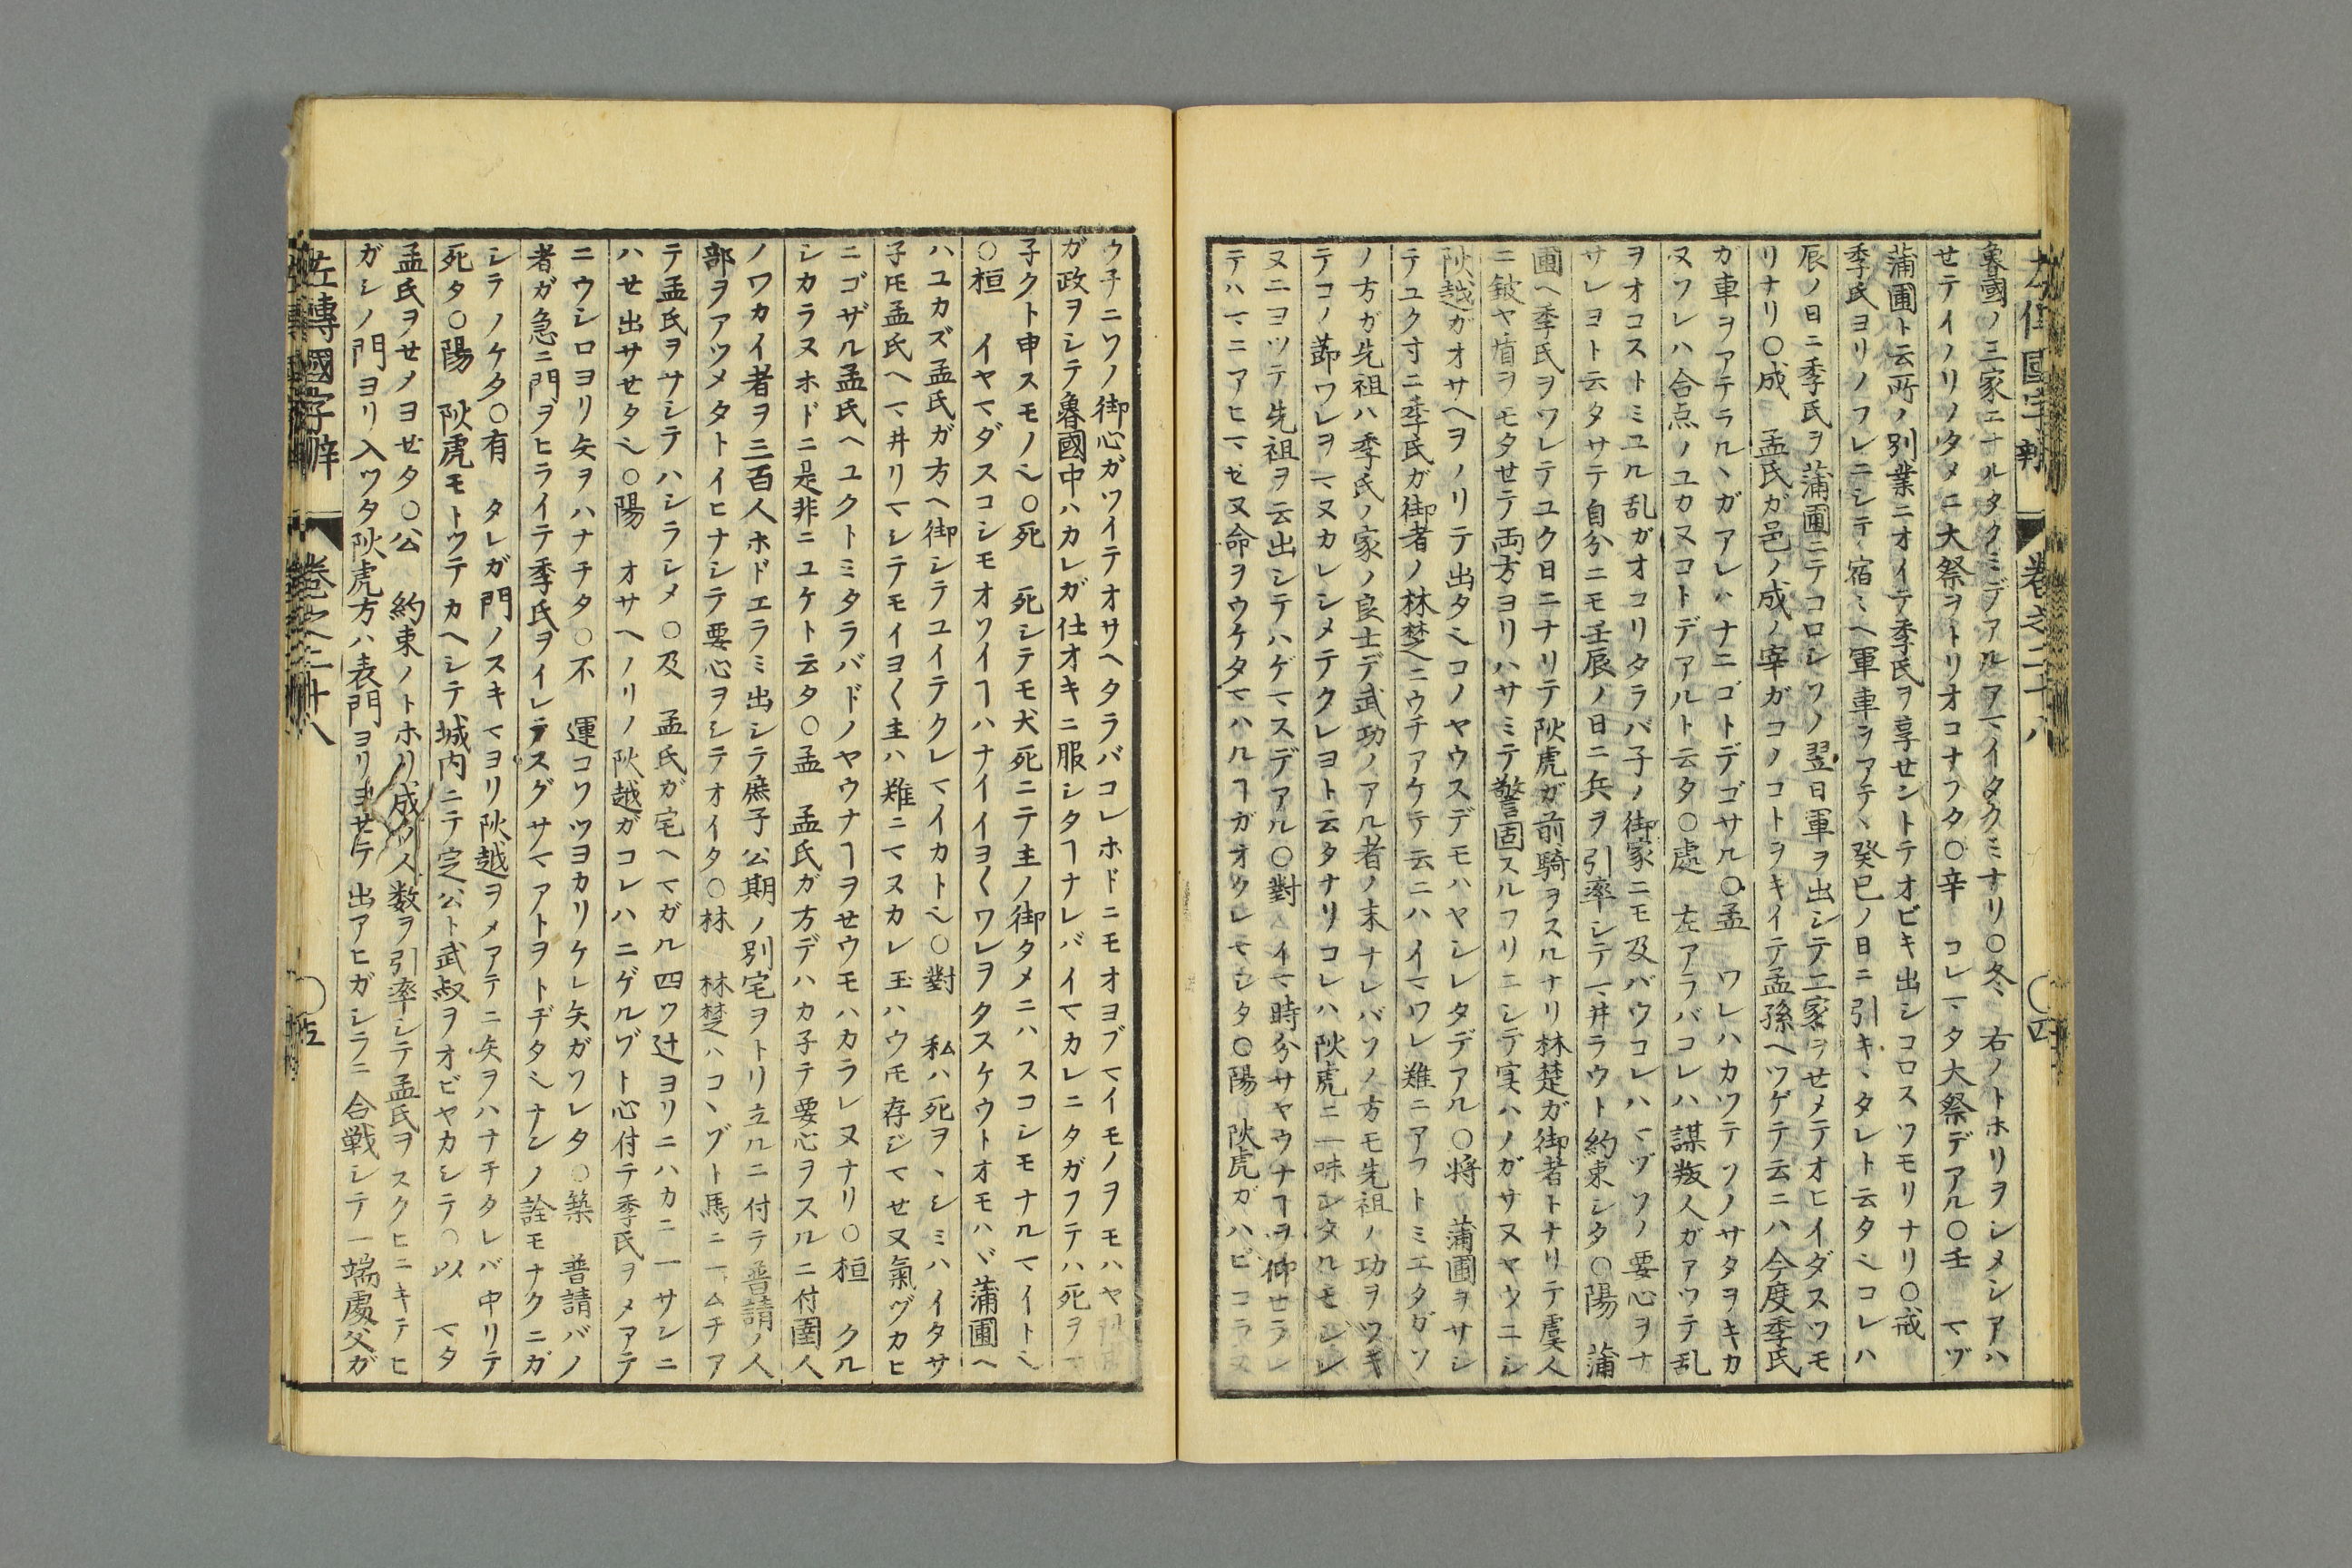 魯國ノ三家エナルタクミデアルアマイタクミナリ〇冬、右ノトホリヲシメシアハ
セテイノリノタメニ大祭ヲトリオコナフタ〇辛 コレマタ大祭デアル〇壬 マヅ
蒲圃ト云所ノ別業ニオイテ季氏ヲ享セントテオビキ出シコロスツモリナリ〇戒
季氏ヨリノフレニシテ宿ミヘ軍車ヲアテ、癸巳ノ日ニ引キ、タレト云タヘコレハ
辰ノ日ニ季氏ヲ蒲圃ニテコロシソノ翌日軍ヲ出シテ二家ヲセメテオヒイダスツモ
リナリ〇成 孟氏ガ邑ノ成ノ宰ガコノコトヲキイテ孟孫ヘツゲテ云ニハ今度季氏
ガ車ヲアテラル丶ガアレハナニゴトデゴサル〇孟 ワレハカツテソノサタヲキカ
ヌソレハ合点ノユカヌコトデアルト云タ〇處 左アラバコレハ謀叛人ガアツテ乱
ヲオコストミユル乱ガオコリタラバ子ノ御家ニモ及バウコレハマヅソノ要心ヲナ
サレヨト云タサテ自分ニモ壬辰ノ日ニ兵ヲ引率シテマ井ラウト約束シタ〇陽 蒲
圃ヘ季氏ヲツレテユク日ニナリテ陽虎ガ前騎ヲスルナリ林楚ガ御者トナリテ虞人
ニ鈹ヤ盾ヲモタセテ両方ヨリハサミテ警固スルフリニシテ実ハノガサヌヤウニシ
陽越ガオサヘヲノリテ出タヘコノヤウスデモハヤシレタデアル〇將 蒲圃ヲサシ
テユク寸ニ季氏ガ御者ノ林楚ニウチアケテ云ニハイマワレ難ニアフトミエタガソ
ノ方ガ先祖ハ季氏ノ家ノ良士デ武功ノアル者ノ末ナレバソノ方モ先祖ノ功ヲツキ
テコノ節ワレヲマヌカレシメテクレヨト云タナリコレハ陽虎ニ一味シタルモシレ
ヌニヨツテ先祖ヲ云出シテハゲマスデアル〇對 イマ時分サヤウナヿヲ仰セラレ
テハマニアヒマセヌ命ヲウケタマハルヿガオクレマシタ〇陽 陽虎ガハビコラヌ
ウチニソノ御心ガツイテオサヘタラバコレホドニモオヨブマイモノヲモハヤ陽虎
ガ政ヲシテ魯國中ハカレガ仕オキニ服シタヿナレバイマカレニタガフテハ死ヲマ
子クト申スモノヘ〇死 死シテモ犬死ニテ主ノ御タメニハスコシモナルマイトヘ
〇桓 イヤマダスコシモオソイヿハナイイヨ〱ワレヲタスケウトオモハヾ蒲圃ヘ
ハユカズ孟氏ガ方ヘ御シテユイテクレマイカトヘ〇對 私ハ死ヲ丶シミハイタサ
子㲋孟氏ヘマ井リマシテモイヨ〱主ハ難ニマヌカレ玉ハウ㲋存ジマセヌ氣ヅカヒ
ニゴザル孟氏ヘユクトミタラバドノヤウナヿヲセウモハカラレヌナリ〇桓 クル
シカラヌホドニ是非ニユケト云タ〇孟 孟氏ガ方デハカ子テ要心ヲスルニ付圉人
ノワカイ者ヲ三百人ホドエラミ出シテ庶子公期ノ別宅ヲトリ立ルニ付テ普請ノ人
部ヲアツメタトイヒナシテ要心ヲシテオイタ〇林 林楚ハコ丶ゾト馬ニ一ムチア
テ孟氏ヲサシテハシラシメ〇及 孟氏ガ宅ヘマガル四ツ辻ヨリニハカニ一サンニ
ハセ出サセタヘ〇陽 オサヘノリノ陽越ガコレハニゲルゾト心付テ季氏ヲメアテ
ニウシロヨリ矢ヲハナチタ〇不 運コソツヨカリケレ矢ガソレタ〇築 普請バノ
者ガ急ニ門ヲヒライテ季氏ヲイレテスグサマアトヲトヂタヘナンノ詮モナクニガ
シラノケタ〇有 タレガ門ノスキマヨリ陽越ヲメアテニ矢ヲハナチタレバ中リテ
死タ〇陽 陽虎モトウテカヘシテ城内ニテ定公ト武叔ヲオビヤカシテ〇以 マタ
孟氏ヲセメヨセタ〇公 約束ノトホリ成ノ人数ヲ引率シテ孟氏ヲスクヒニキテヒ
ガシノ門ヨリ入ツタ陽虎方ハ表門ヨリヨセテ出アヒガシラニ合戦シテ一端處父ガ
左傳國字辯 卷之二十八 〇五